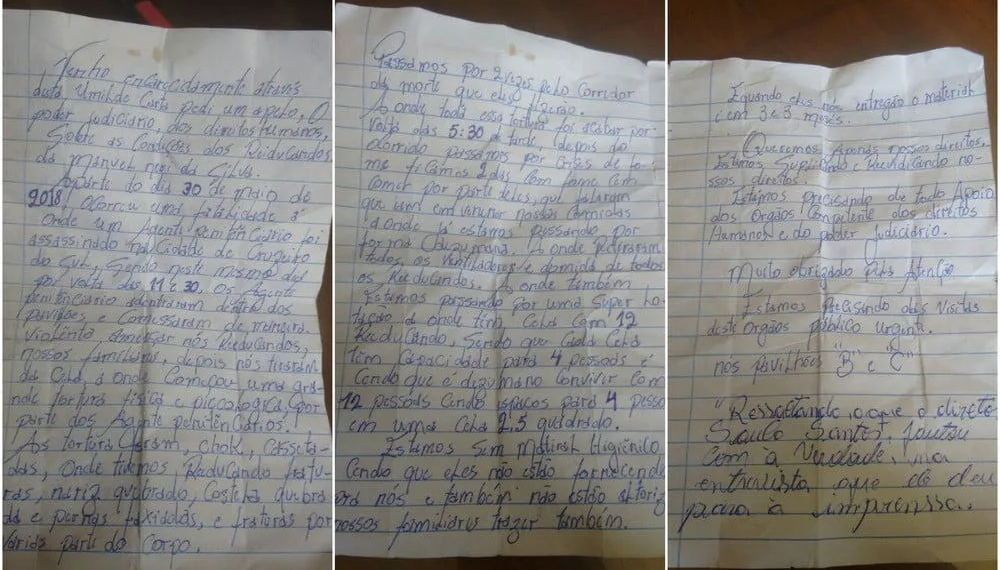 Venho encarecidamente através
desta Umilde Carta pedi um apelo, O
poder judiciário, dos direitos humanos,
Sobre as Condições dos Reeducandos
da manuel neri da Silva.
Aparte do dia 30 de maio de
2018 Ocorreu uma fatalidade a
onde um Agente penitenciário foi
assassinado na Cidade de Cruzeiro
do Sul, Sendo neste mesmo dia
por volta das 11 e 30. Os Agente
penitênciário adentraram dentro dos
pavilhões e Comessaram de maneira
violenta ameasar nós Reeducandos,
nossos familiares, depois nós tiraram
da Cela, a onde Começou uma gra-
nde tortura física e picologica, por
parte dos Agente penitênciários.
As tortura foram, chok, Casseta-
das, Onde tivemos, Reeducando fratu-
ras, nariz quebrado, Costela quebra
da e pernas, e fraturas por
várias parte do Corpo.
Passamos por 2 vezes pelo Corridor
da morte que eles fizerão.
A onde toda essa tortura foi acabar por
volta das 5:30 da tarde, depois do
ocorrido passamos por crises de fo-
me ficamos 2 dias Com fome Cem
Comer por parte deles, que falaram
que iam em nossas Comidas
a onde já estamos passando por
forma A onde retiraram
todos os Ventiladores e de todos
os Reeducandos. A onde também
Estamos passando por uma Super lo-
tação a onde tem Cela Com 12
Reeducando, Sendo que Cada Cela
tem Capacidade para 4 pessoas é
Cendo que é dizumano Convivir Com
12 pessoas Cendo espaços para 4 pesso
em uma Cela 2,5 quadrado.
Estamos Sem Matirial Higiênico
Cendo que eles não estão fornecendo
pra nós e também não estão altoriz
nossos familiares trazer também.
E quando eles nos entregão o material
é em 3 e 3 meses.
Queremos apenas nossos direitos,
Estamos Suplicando e Reeivdicando no-
ssos direitos.
Estamos precisando de todo Apoio
dos Orgãos Competente dos direitos
Humanos e do poder judiciário.
Muito obrigado pela Atenção
Estamos precisando das Visitas
deste Orgãos público Urgente.
nos pavilhões "B" e "C"
"Ressaltando, o que o direto
Saulo Santos, faltou
Com à Verdade, na
entrevista que ele deu
para à imprenssa.